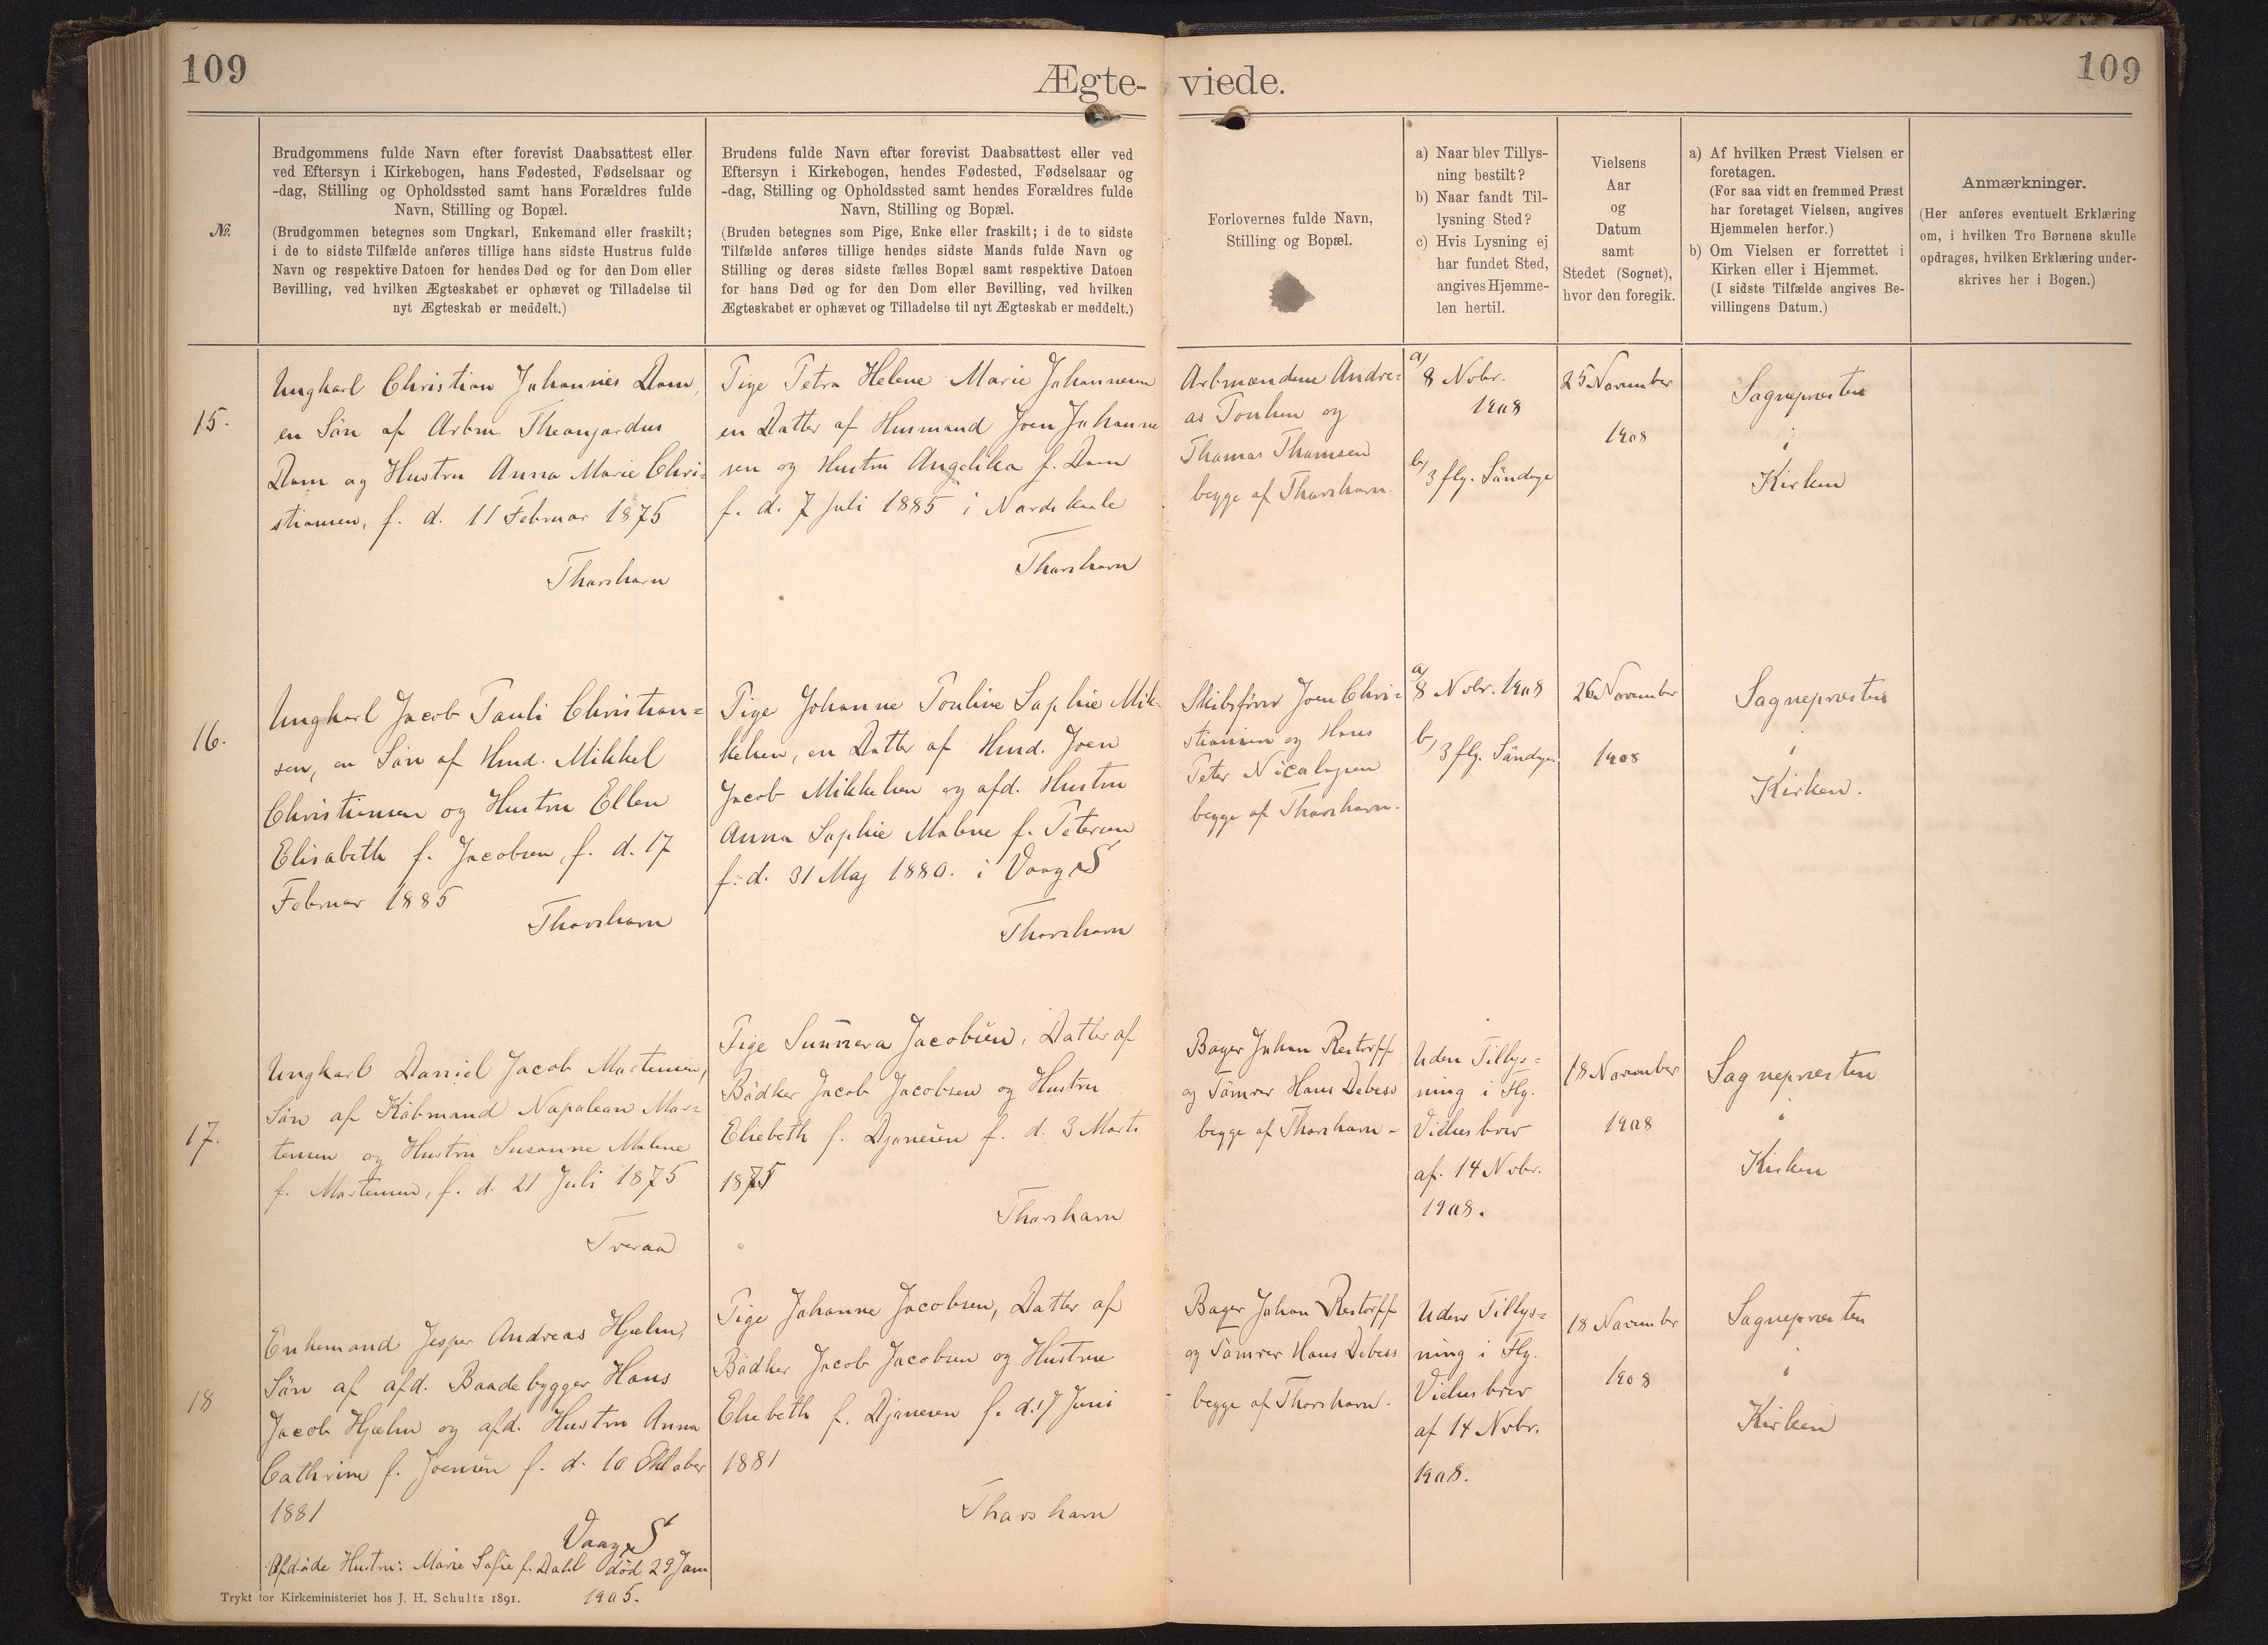 109
Ægte- viede.
109
№.
Brudgommens fulde Navn efter forevist Daabsattest eller
ved Eftersyn i Kirkebogen, hans Fødested, Fødselsaar og
-dag, Stilling og Opholdssted samt hans Forældres fulde
Navn, Stilling og Bopæl.
(Brudgommen betegnes som Ungkarl, Enkemand eller fraskilt;
i de to sidste Tilfælde anføres tillige hans sidste Hustrus fulde
Navn og respektive Datoen for hendes Død og for den Dom eller
Bevilling, ved hvilken Ægteskabet er ophævet og Tilladelse til
nyt Ægteskab er meddelt.)
Brudens fulde Navn efter forevist Daabsattest eller ved
Eftersyn i Kirkebogen, hendes Fødested, Fødselsaar og
-dag, Stilling og Opholdssted samt hendes Forældres fulde
Navn, Stilling og Bopæl.
(Bruden betegnes som Pige, Enke eller fraskilt; i de to sidste
Tilfælde anføres tillige hendes sidste Mands fulde Navn og
Stilling og deres sidste fælles Bopæl samt respektive Datoen
for hans Død og for den Dom eller Bevilling, ved hvilken
Ægteskabet er ophævet og Tilladelse til nyt Ægteskab er meddelt.)
Forlovernes fulde Navn,
Stilling og Bopæl.
a) Naar blev Tillys-
ning bestilt?
b) Naar fandt Til-
lysning Sted?
c) Hvis Lysning ej
har fundet Sted,
angives Hjemme-
len hertil.
Vielsens
Aar
og
Datum
samt
Stedet (Sognet),
hvor den foregik.
a) Af hvilken Præst Vielsen er
foretagen.
(For saa vidt en fremmed Præst
har foretaget Vielsen, angives
Hjemmelen herfor.)
b) Om Vielsen er forrettet i
Kirken eller i Hjemmet.
(I sidste Tilfælde angives Be-
villingens Datum.)
Anmærkninger.
(Her anføres eventuelt Erklæring
om, i hvilken Tro Børnene skulle
opdrages, hvilken Erklæring under-
skrives her i Bogen.)
15.
Ungkarl Christian Johannes Dam,
en Sön af Arbm. Theangardus
Dam og Hustru Anna Marie Chri-
stiansen, f. d. 11 Februar 1875
Thorshavn
Pige Petra Helene Marie Johannesen
en Datter af Husmand Joen Johanne
sen og Hustru Angelika f. Dam
f. d. 7 Juli 1885 i Nordskaale
Thorshavn
Arbmændene Andre-
as Poulsen og
Thomas Thomsen
begge af Thorshavn.
a) 8 Novbr.
1908
b) 3 flg. Söndage
25 November
1908
Sognepræsten
i
Kirken
16.
Ungkarl Jacob Pauli Christian-
sen, en Sön af Hmd. Mikkel
Christiansen og Hustru Ellen
Elisabeth f. Jacobsen, f. d. 17
Februar 1885
Thorshavn
Pige Johanne Pouline Sophie Mik-
kelsen, en Datter af Hmd. Joen
Jacob Mikkelsen og afd. Hustru
Anna Sophie Malene f. Petersen
f. d. 31 Maj 1880. i Vaag S
Thorshavn
Skibsförer Joen Chri-
stiansen og Hans
Peter Nicolajsen
begge af Thorshavn.
a) 8 Novbr. 1908
b) 3 flg. Söndage
26 November
1908
Sognepræsten
i
Kirken.
17.
Ungkarl Daniel Jacob Mortensen,
Sön af Köbmand Napoleon Mor-
tensen og Hustru Susanne Malene
f. Mortensen, f. d. 21 Juli 1875
Tveraa
Pige Sunneva Jacobsen, Datter af
Bödker Jacob Jacobsen og Hustru
Elsebeth f. Djonesen f. d. 3 Marts
1875
Thorshavn
Bager Johan Restorff
og Tömrer Hans Debess
begge af Thorshavn.
Uden Tillys-
ning i Flg.
Vielsesbrev
af. 14 Novbr.
1908.
18 November
1908
Sognepræsten
i
Kirken
18
Enkemand Jesper Andreas Hjelm,
Sön af afd. Baadebygger Hans
Jacob Hjelm og afd. Hustru Anna
Cathrine f. Joensen f. d. 10 Oktober
1881
Vaag S
Afdöde Hustru: Marie Sofie f. Dahl död 29 Jan
1905.
Pige Johanne Jacobsen, Datter af
Bödker Jacob Jacobsen og Hustru
Elsebeth f. Djonesen f. d. 17 Juni
1881
Thorshavn
Bager Johan Restorff
og Tömrer Hans Debess
begge af Thorshavn.
Uden Tillys-
ning i Flg.
Vielsesbrev
af 14 Novbr.
1908.
18 November
1908
Sognepræsten
i
Kirken
Trykt for Kirkeministeriet hos J. H. Schultz 1891.